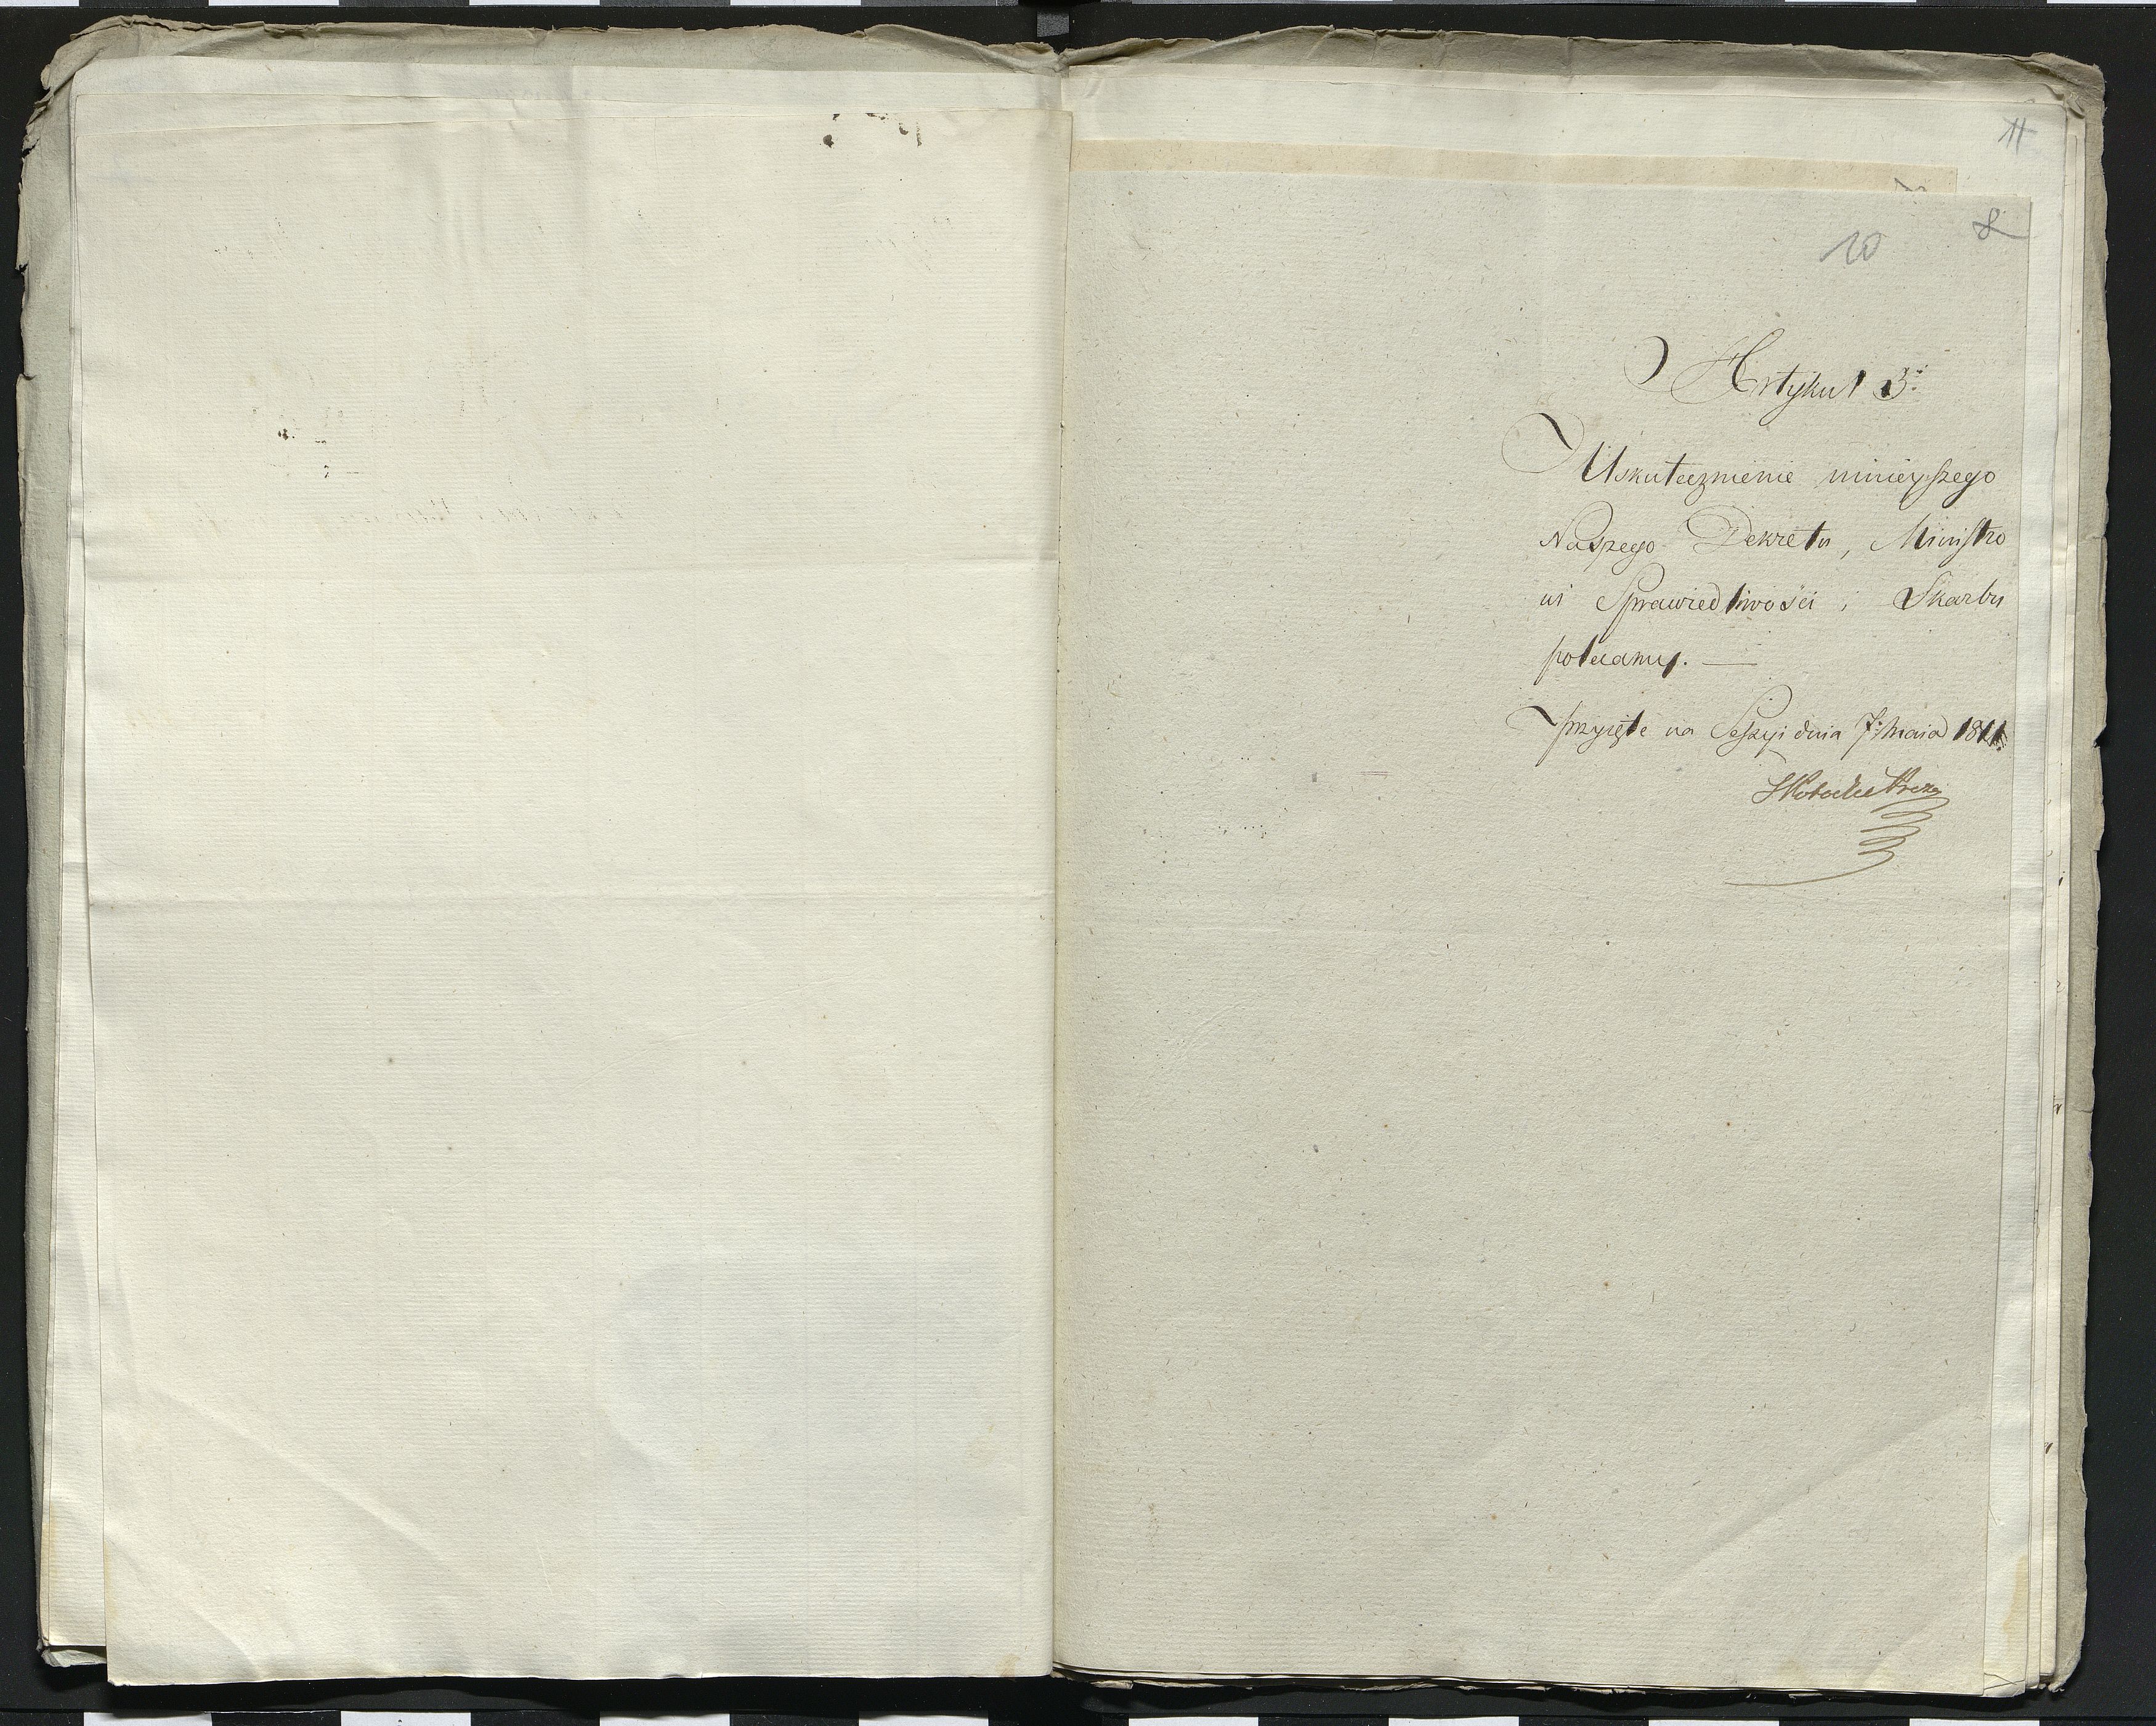 11
8
10
Artykuł 3ci
Uskutecznienie ninieyszego
Naszego Dekretu, Ministro
wi Sprawiedliwości i Skarbu
polecamy. —
przyięte na Sessyi dnia 7. Maia 1811.